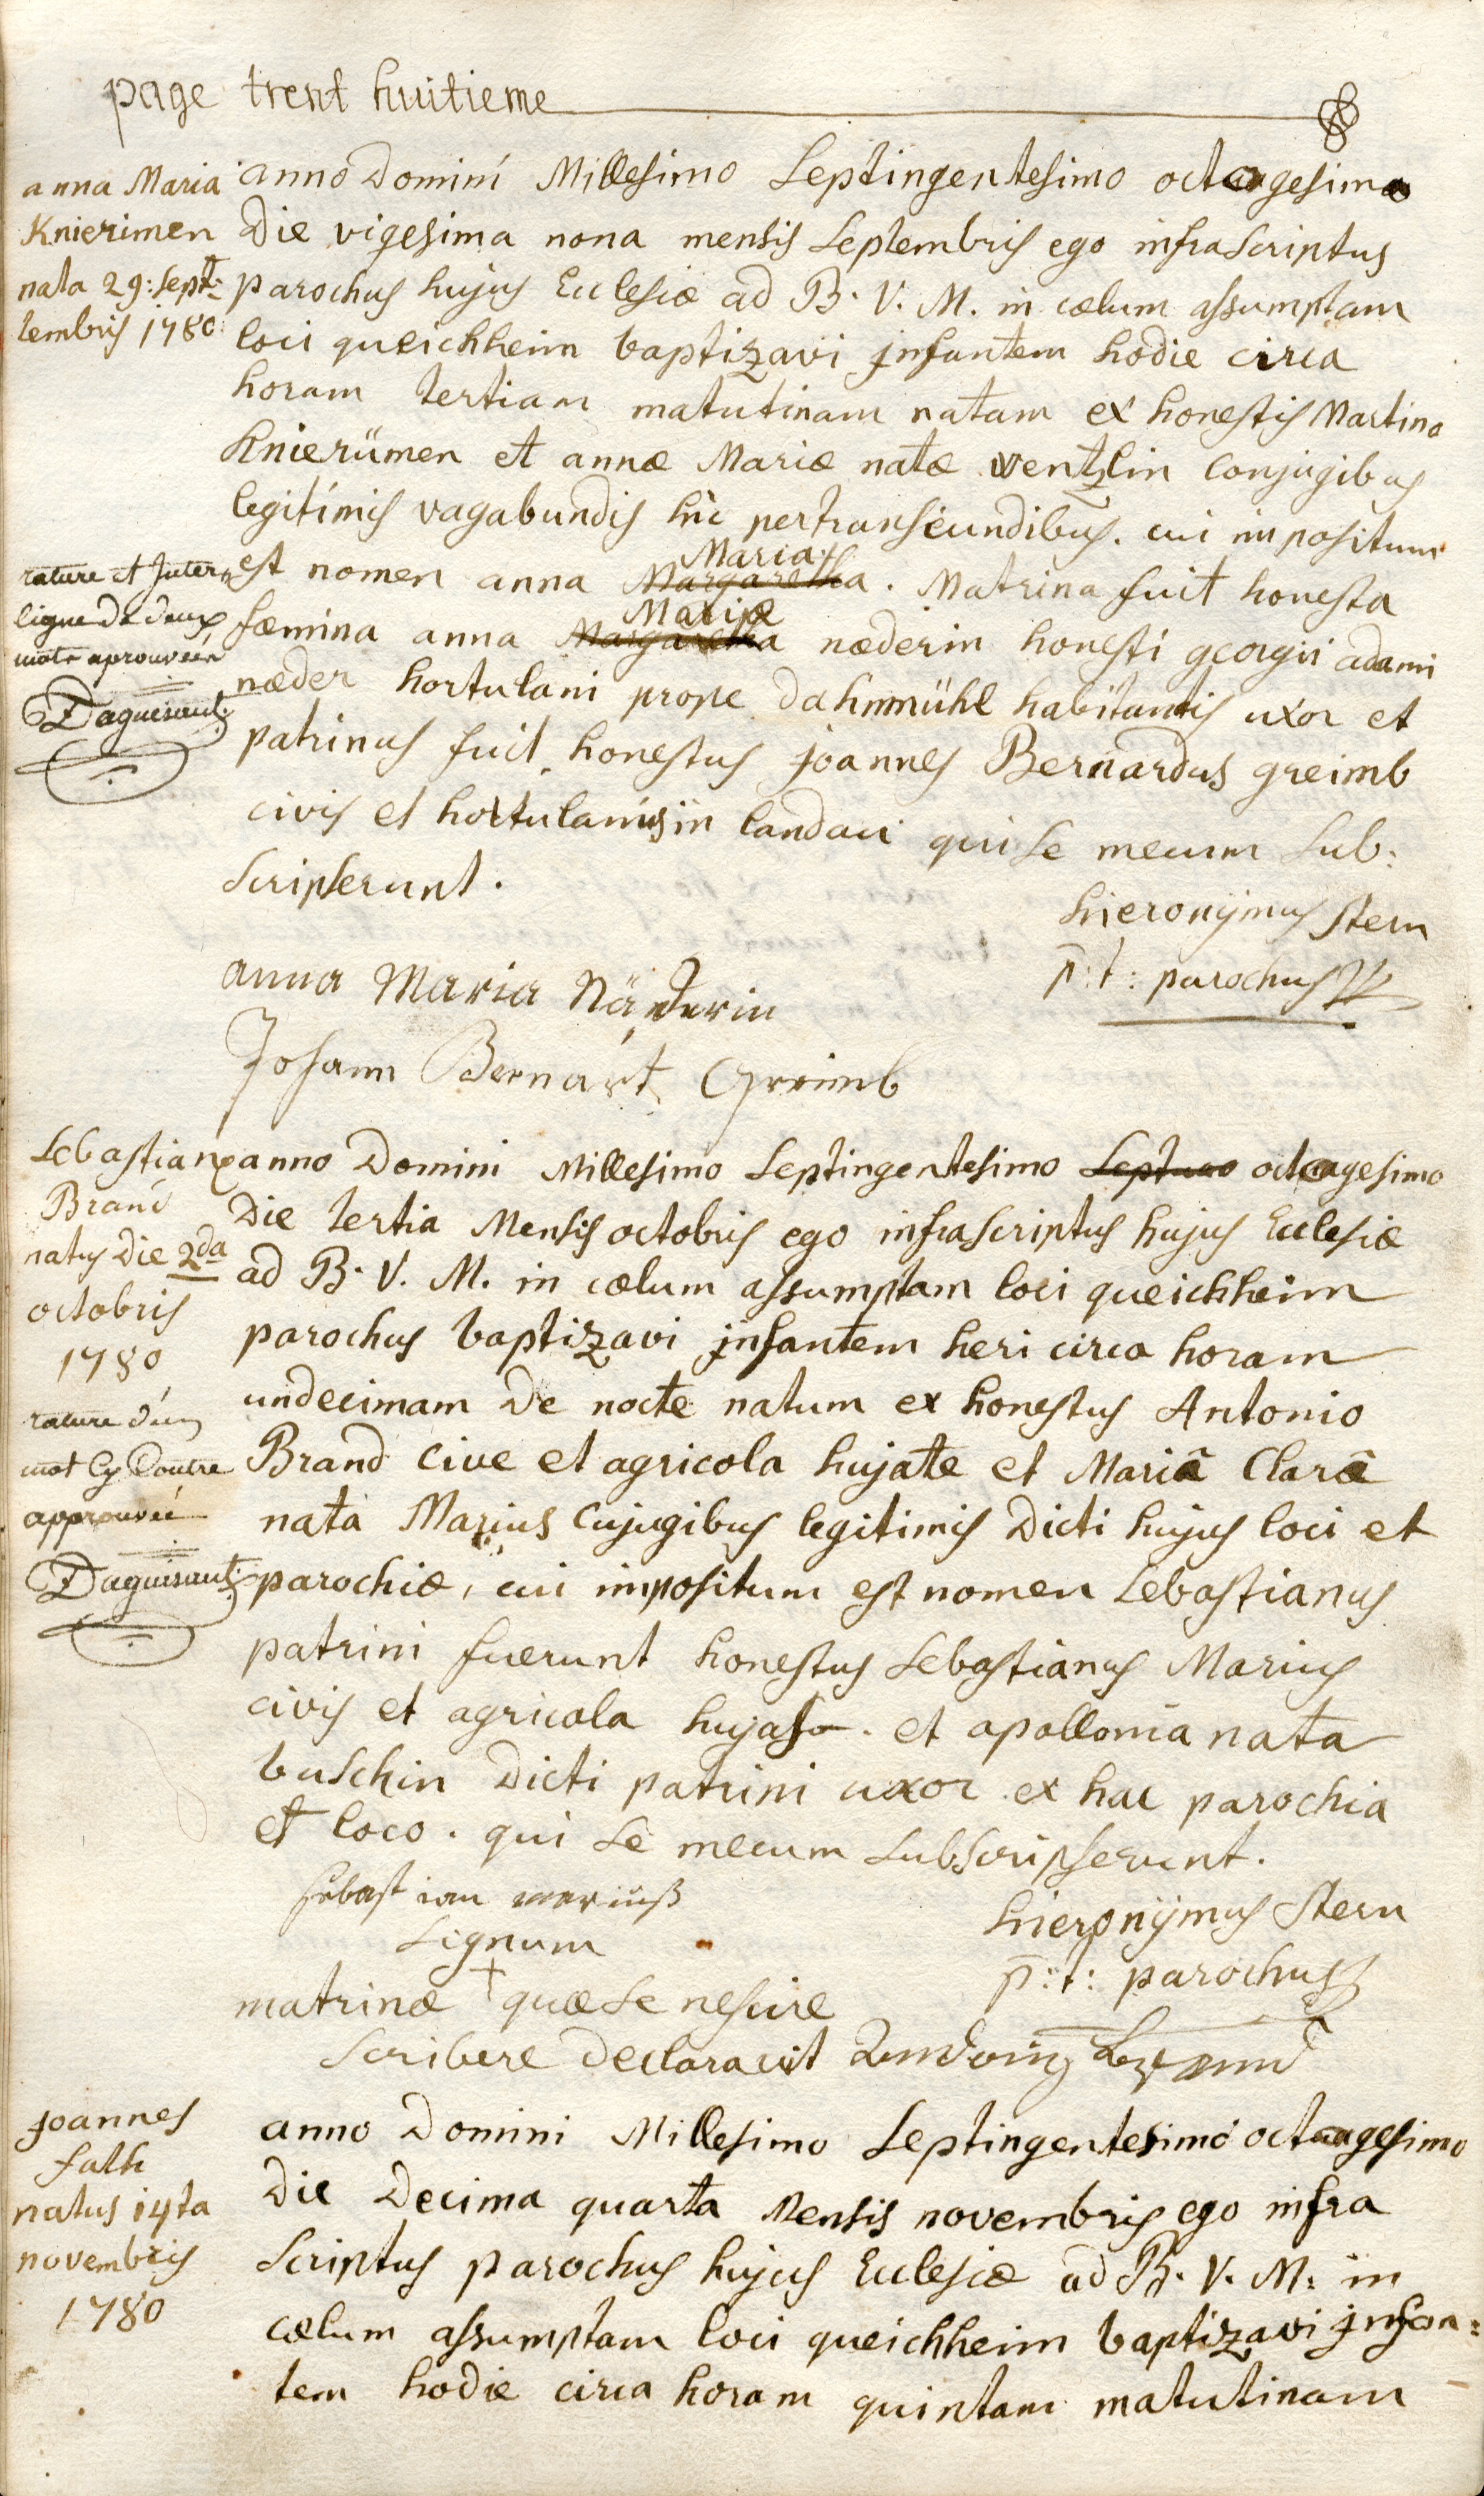 page trent huitieme
anna Maria
Knierimen
nata 29: sept=
tembris 1780
anno Domini Millesimo Septingentesimo octogesimo
Die vigesima nona mensis Septembris ego infrascriptus
parochus hujus Ecclesiæ ad B. V. M. in cœlum assumptam
loci queichheim baptizavi jnfantem hodie circa
horam tertiam matutinam natam ex honestis Martino
Knierümen et annæ Mariæ natæ wentzlin conjugibus
legitimis vagabundis hic pertranseundibus. cui impositum
est nomen anna Margaretha Maria. Matrina fuit honesta
fœmina anna Margaretha Mariæ næderin honesti georgii adami
næder hortulani prope dahmmühl habitantis uxor et
patrinus fuit honestus joannes Bernardus greimb
civis et hortulanus in landau qui se mecum sub:
scripserunt.
rature et Inter
ligne De deux
mots aprouvéer
Daguisaut
hieronijmus Stern
p: t: parochus
anna Maria Näderin
Johann Bernart Greimb
Sebastiany
Brand
natus Die 2da
octobris
1780
rature d'un
mot Cy Contre
approuvéé
Daguisaut
anno Domini Millesimo Septingentesimo octogesimo
Die tertia Mensis octobris ego infrascriptus hujus Ecclesiæ
ad B. V. M. in cœlum assumptam loci queichheim
parochus baptizavi jnfantem heri circa horam
undecimam De nocte natum ex honestus Antonio
Brand Cive et agricola hujate et Mariâ Clarâ
nata Marius Cujugibus legitimis Dicti hujus loci et
parochiæ, cui impositum est nomen Sebastianus
patrini fuerunt honestus Sebastianus Marius
civis et agricola hujas. et apollonia nata
buschin Dicti patrini uxor ex hac parochia
et loco. qui se mecum subscripserunt.
Sebastian mariuß
Signum
matrinæ + quæ se nescire
scribere Declaravit
hieronijmus Stern
p: t: parochus
joannes
fath
natus 14ta
novembris
1780
anno Domini Millesimo Septingentesimo octogesimo
Die Decima quarta Mensis novembris ego infra
scriptus parochus hujus Ecclesiæ ad B. V. M: in
cœlum assumptam loci queichheim baptizavi jnfan=
tem hodie circa horam quintam matutinam